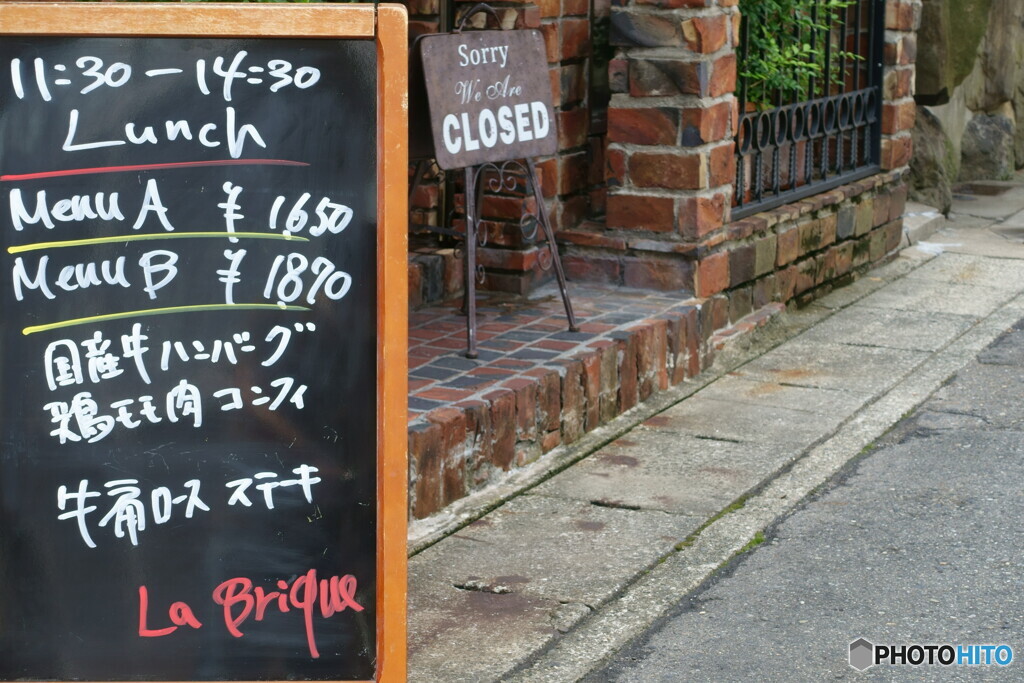 11:30 − 14:30
Lunch
Menu A ¥ 1650
Menu B ¥ 1870
国産牛ハンバーグ
鶏モモ肉 コンフィ
牛肩ロース ステーキ
La Brique
Sorry
We Are
CLOSED
PHOTOHITO